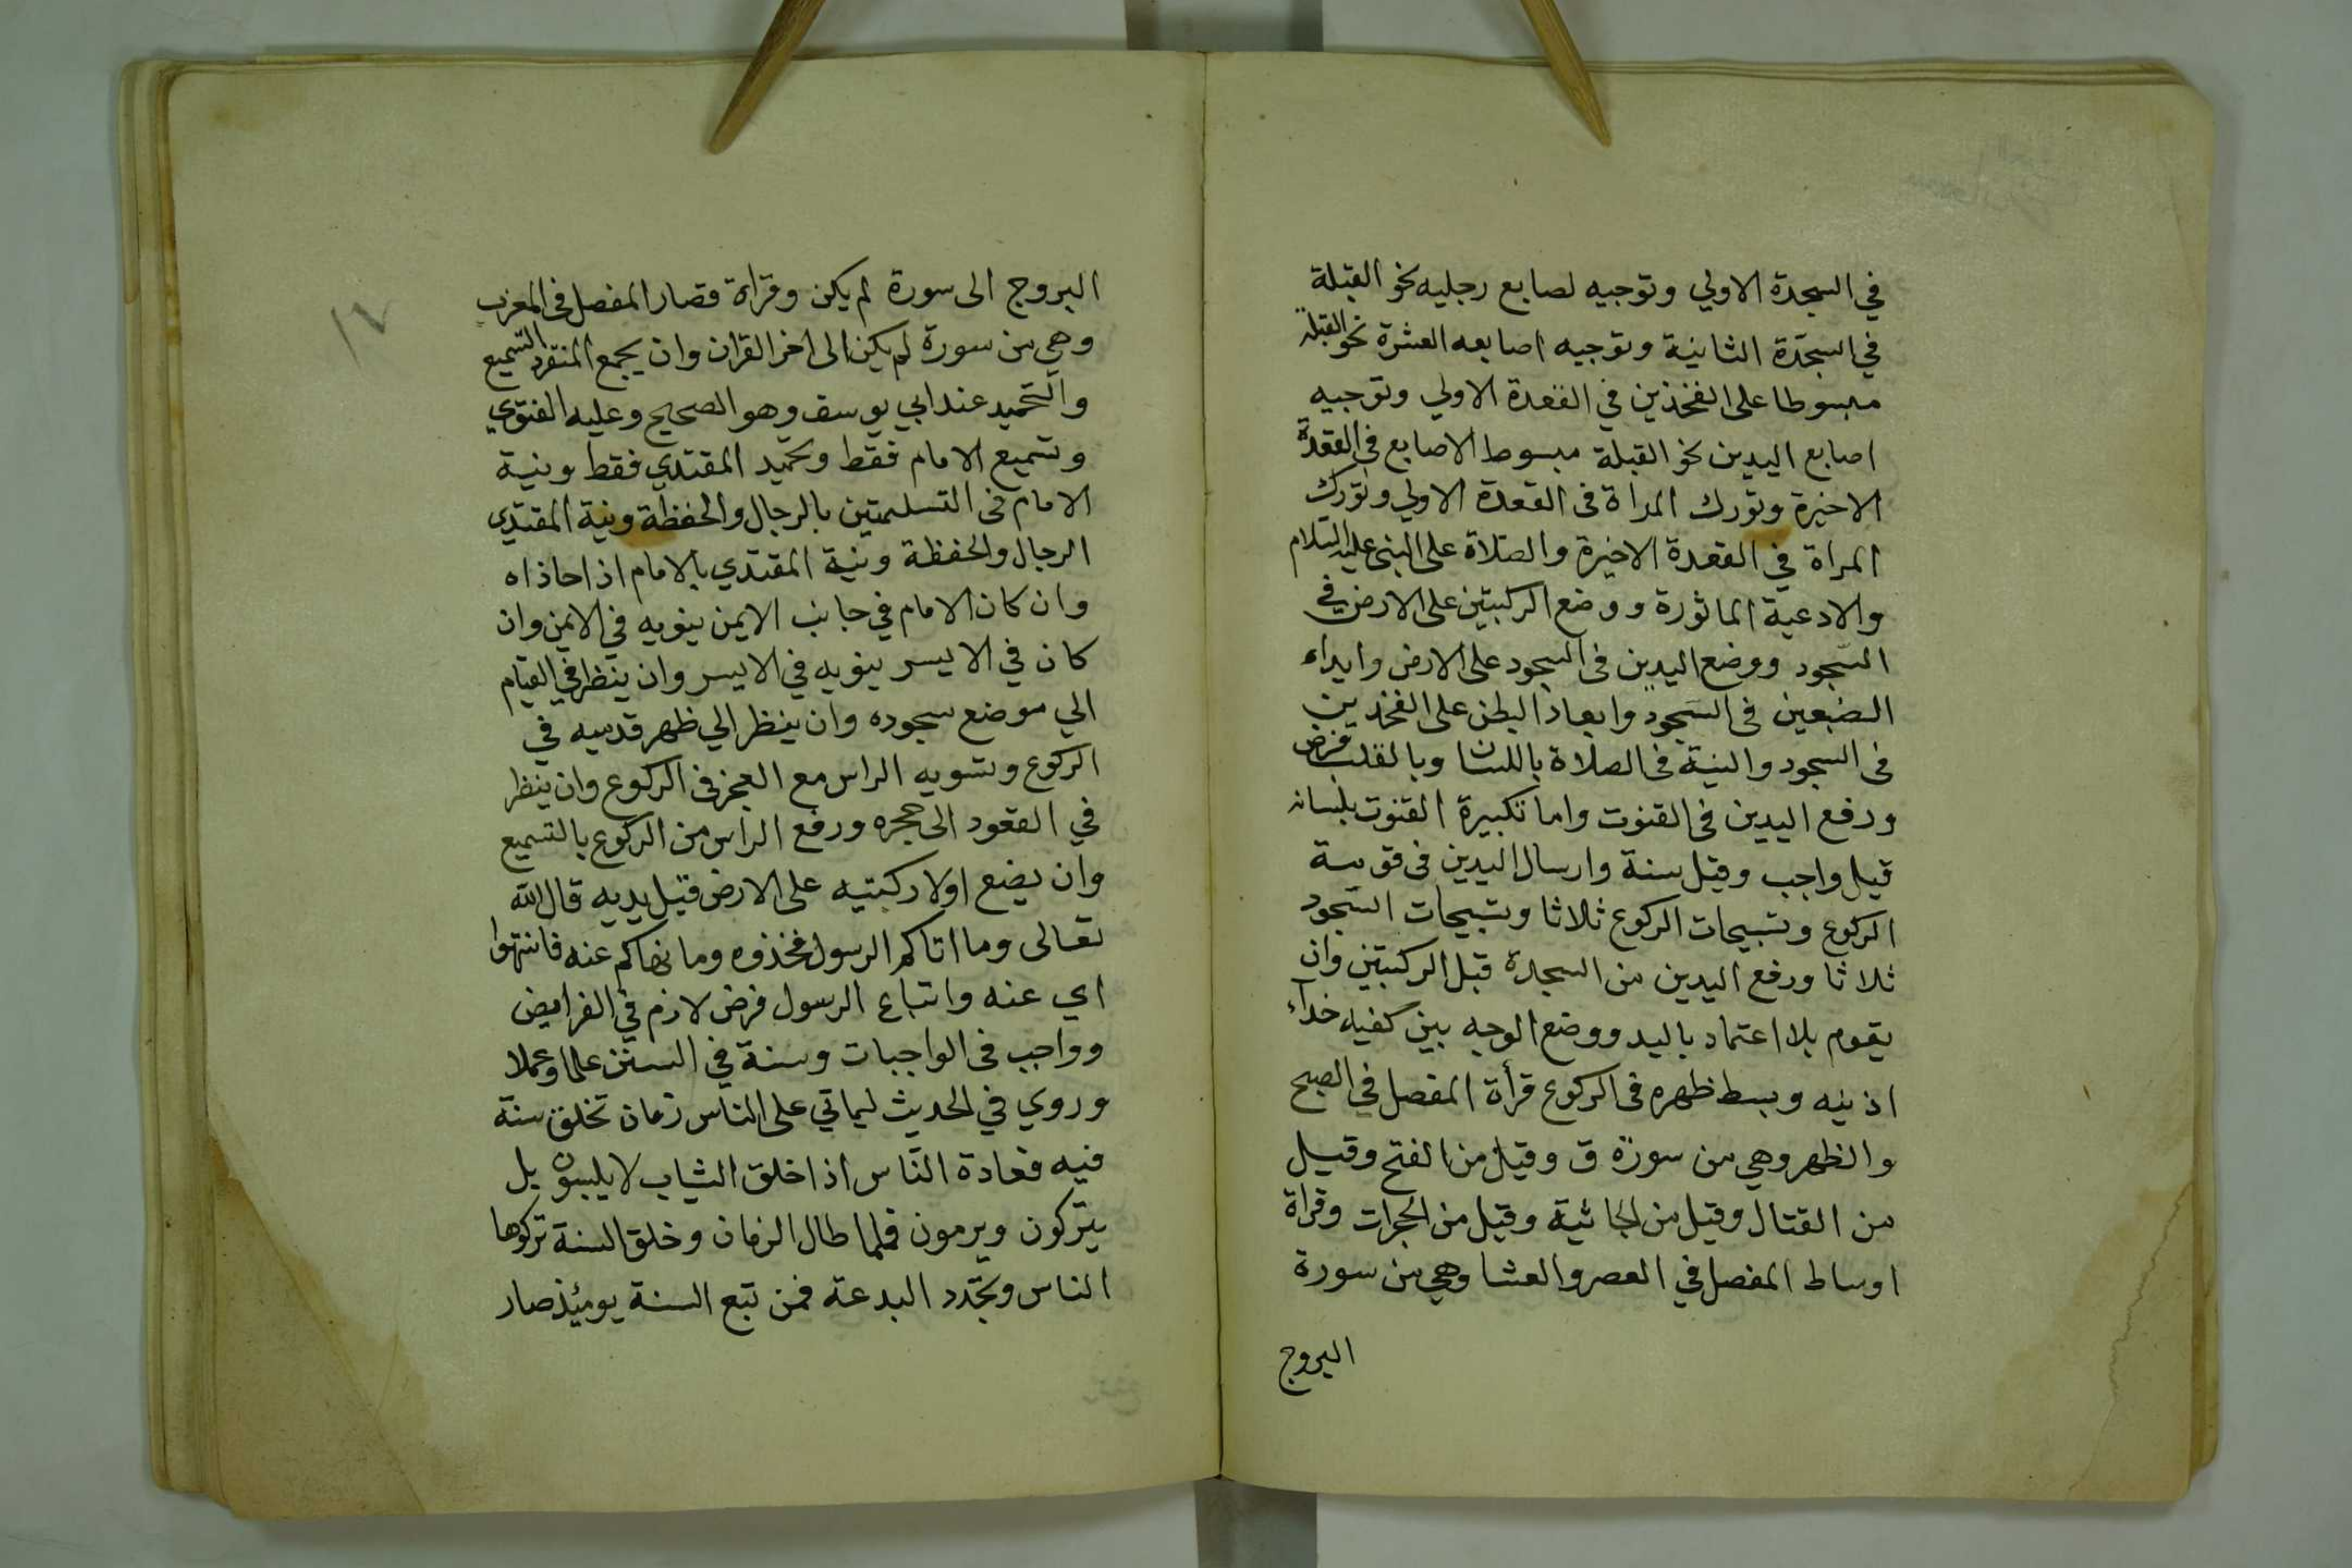 في السجدة الاولي وتوجيه لصابع رجليه نحو القبلة
في السجدة الثانية وتوجيه اصابعه العشرة نحو القبلة
مبسوطا على الفخذين في القعدة الاولي وتوجيه
اصابع اليدين نحو القبلة مبسوط الاصابع في القعدة
الاخيرة وتورك المراة في القعدة الاولي وتورك
المراة في القعدة الاخيرة والصلاة على النبى عليه السلام
والادعية الماثورة ووضع الركبتين على الارض في
السجود ووضع اليدين فى السجود على الارض وابداء
الضبعين فى السجود وابعاد البطن على الفخذين
فى السجود والنية فى الصلاة باللسان وبالقلب فرض
ورفع اليدين فى القنوت واما تكبيرة القنوت بلسانه
قيل واجب وقيل سنة وارسال اليدين فى قومة
الركوع وتسبيحات الركوع ثلاثا وتسبيحات السجود
ثلاثا ورفع اليدين من السجدة قبل الركبتين وان
يقوم بلا اعتماد باليد ووضع الوجه بين كفيه حذاء
اذنيه وبسط ظهره فى الركوع قرأة المفصل في الصبح
والظهر وهي من سورة ق وقيل من الفتح وقيل
من القتال وقيل من الجاثية وقيل من الحجرات وقراة
اوساط المفصل في العصر والعشا وهي من سورة
البروج
١٧
البروج الى سورة لم يكن وقراة قصار المفصل فى المغرب
وهي من سورة لم يكن الى اخر القران وان يجمع المنفرد التسميع
والتحميد عند ابي يوسف وهو الصحيح وعليه الفتوي
وتسميع الامام فقط وتحميد المقتدي فقط ونية
الامام فى التسليمتين بالرجال والحفظة ونية المقتدي
الرجال والحفظة ونية المقتدي بالامام اذا حاذاه
وان كان الامام في جانب الايمن ينويه في الايمن وان
كان في الايسر ينويه في الايسر وان ينظر في القيام
الي موضع سجوده وان ينظر الي ظهر قدميه في
الركوع وتسويه الراس مع العجز فى الركوع وان ينظر
في القعود الى حجره ورفع الراس من الركوع بالتسميع
وان يضع اولا ركبتيه على الارض قبل يديه قال الله
تعالى وما اتاكم الرسول فخذوه وما نهاكم عنه فانتهوا
اي عنه واتباع الرسول فرض لازم في الفرايض
وواجب فى الواجبات وسنة في السنن علما وعملا
وروي في الحديث لياتي على الناس زمان تخلق سنة
فيه فعادة النّاس اذا خلق الثياب لا يلبسون بل
يتركون ويرمون فلما طال الزمان وخلق السنة تركوها
الناس وتجدد البدعة فمن تبع السنة يومئذ صار